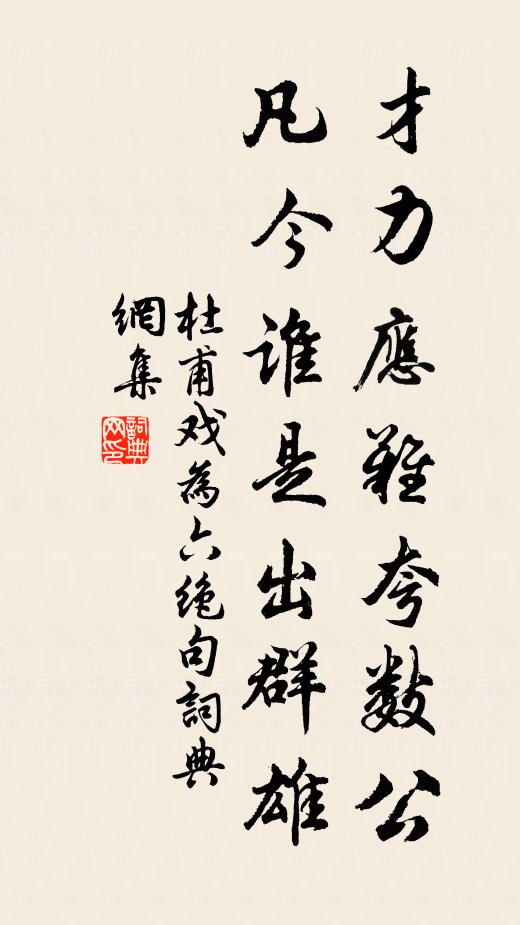 才力應難夸數公
凡今谁是出群雄
杜甫戏為六绝句詞典
網集
詞典
网印